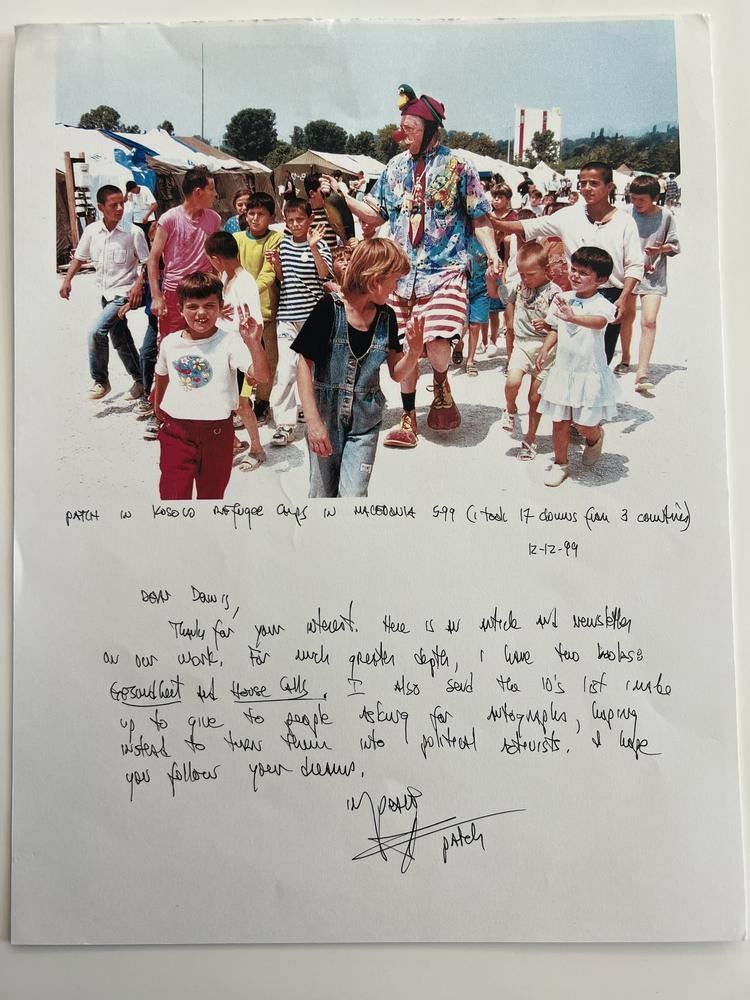 PATCH IN KOSOVO REFugee CAmps IN MACEDONIA 5-99 (i took 17 clowns from 3 countries)
12-12-99
DEAR Dennis,
Thanks for your interest. Here is an article and newsletter
on our work. For much greater depth, i have two books:
Gesundheit and House Calls. I also send the 10's list i make
up to give to people asking for autographs, hoping
instead to turn them into political activists. I hope
you follow your dreams.
in peace
patch